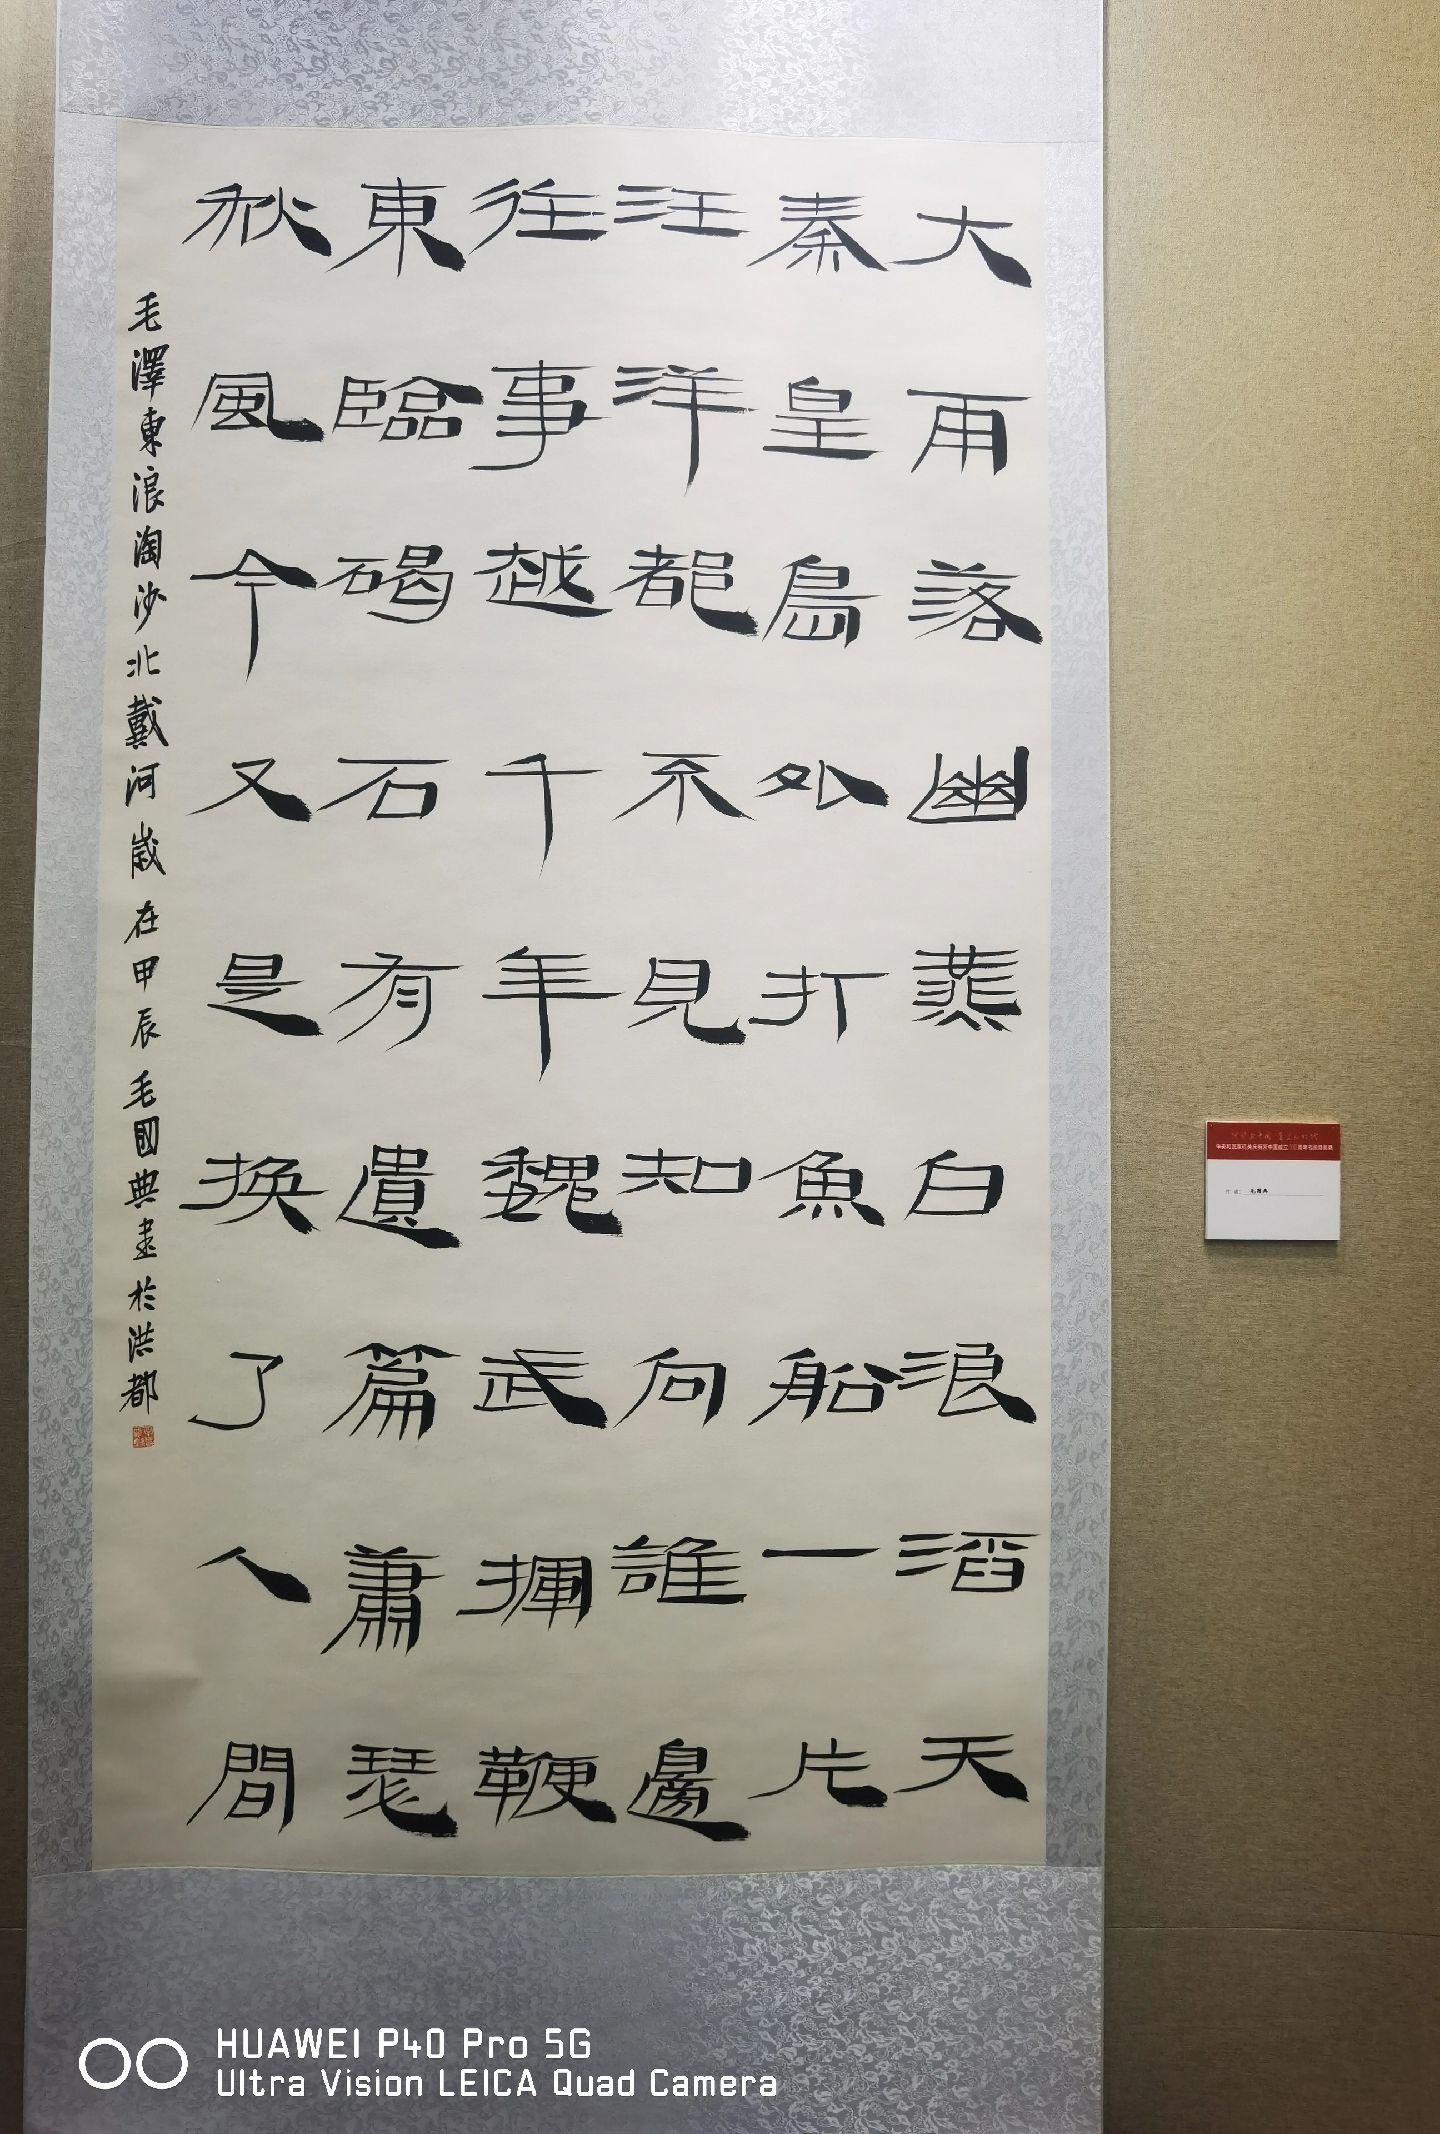 大雨落幽燕白浪滔天
秦皇島外打魚船一片
汪洋都不見知向誰邊
往事越千年魏武揮鞭
東臨碣石有遺篇蕭瑟
秋風今又是換了人間
毛澤東浪淘沙北戴河歲在甲辰毛國典書於洪都
毛國典
HUAWEI P40 Pro 5G
Ultra Vision LEICA Quad Camera